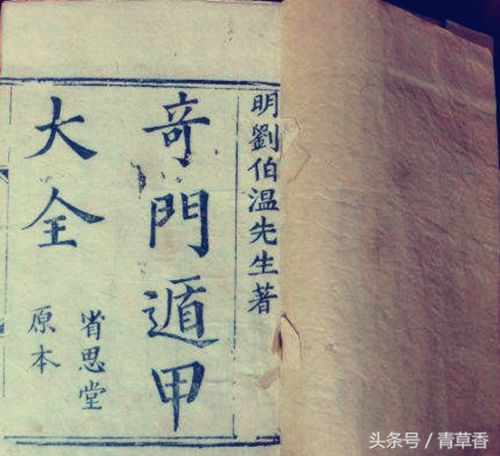 明劉伯温先生著
奇門遁甲
大全
省思堂
原本
头条号／青草香